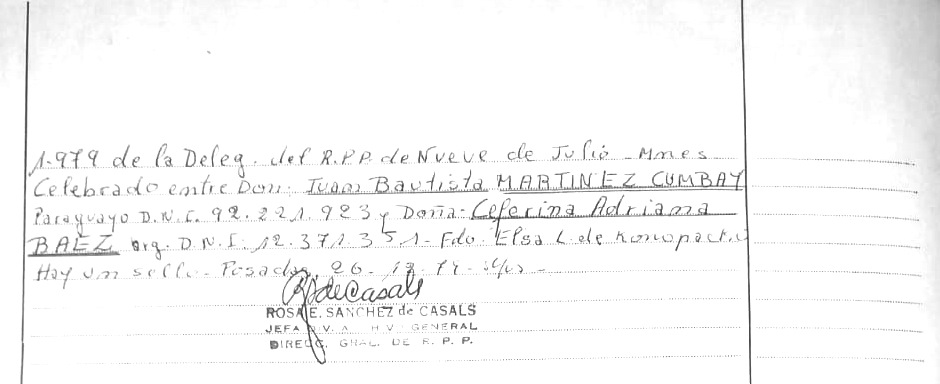 1.979 de la Deleg. del R.P.P. de Nueve de Julio - Mnes
Celebrado entre Don: Juan Bautista MARTINEZ CUMBAY
Paraguayo D.N.I. 92.221.923 y Doña: Ceferina Adriana
BAEZ arg. D.N.I. 12.371.351 - Fdo. Elsa L. de
Hay un sello. Posadas, 26.
ROSA E. SANCHEZ de CASALS
JEFA GENERAL
DIREC. GRAL. DE R. P. P.